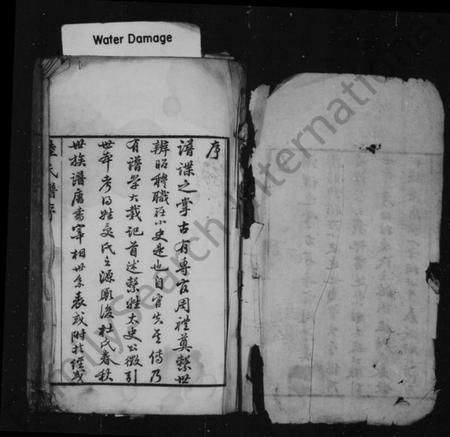 Water Damage
序
譜諜之掌古有專官周禮奠繫世
辨昭穆職在小史是也自官失其傳乃
有譜學大戴記首述繫姓太史公徵引
世本考得姓受氏之源厥後杜氏春秋
世族譜唐書宰相世系表或附於經或
氏譜序
FamilySearch International